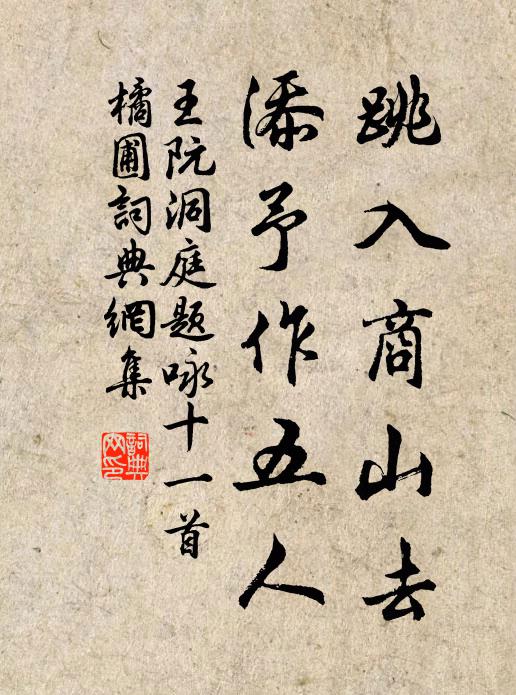 跳入商山去
添予作五人
王阮洞庭题咏十一首
橘圃詞典網集
詞典網印